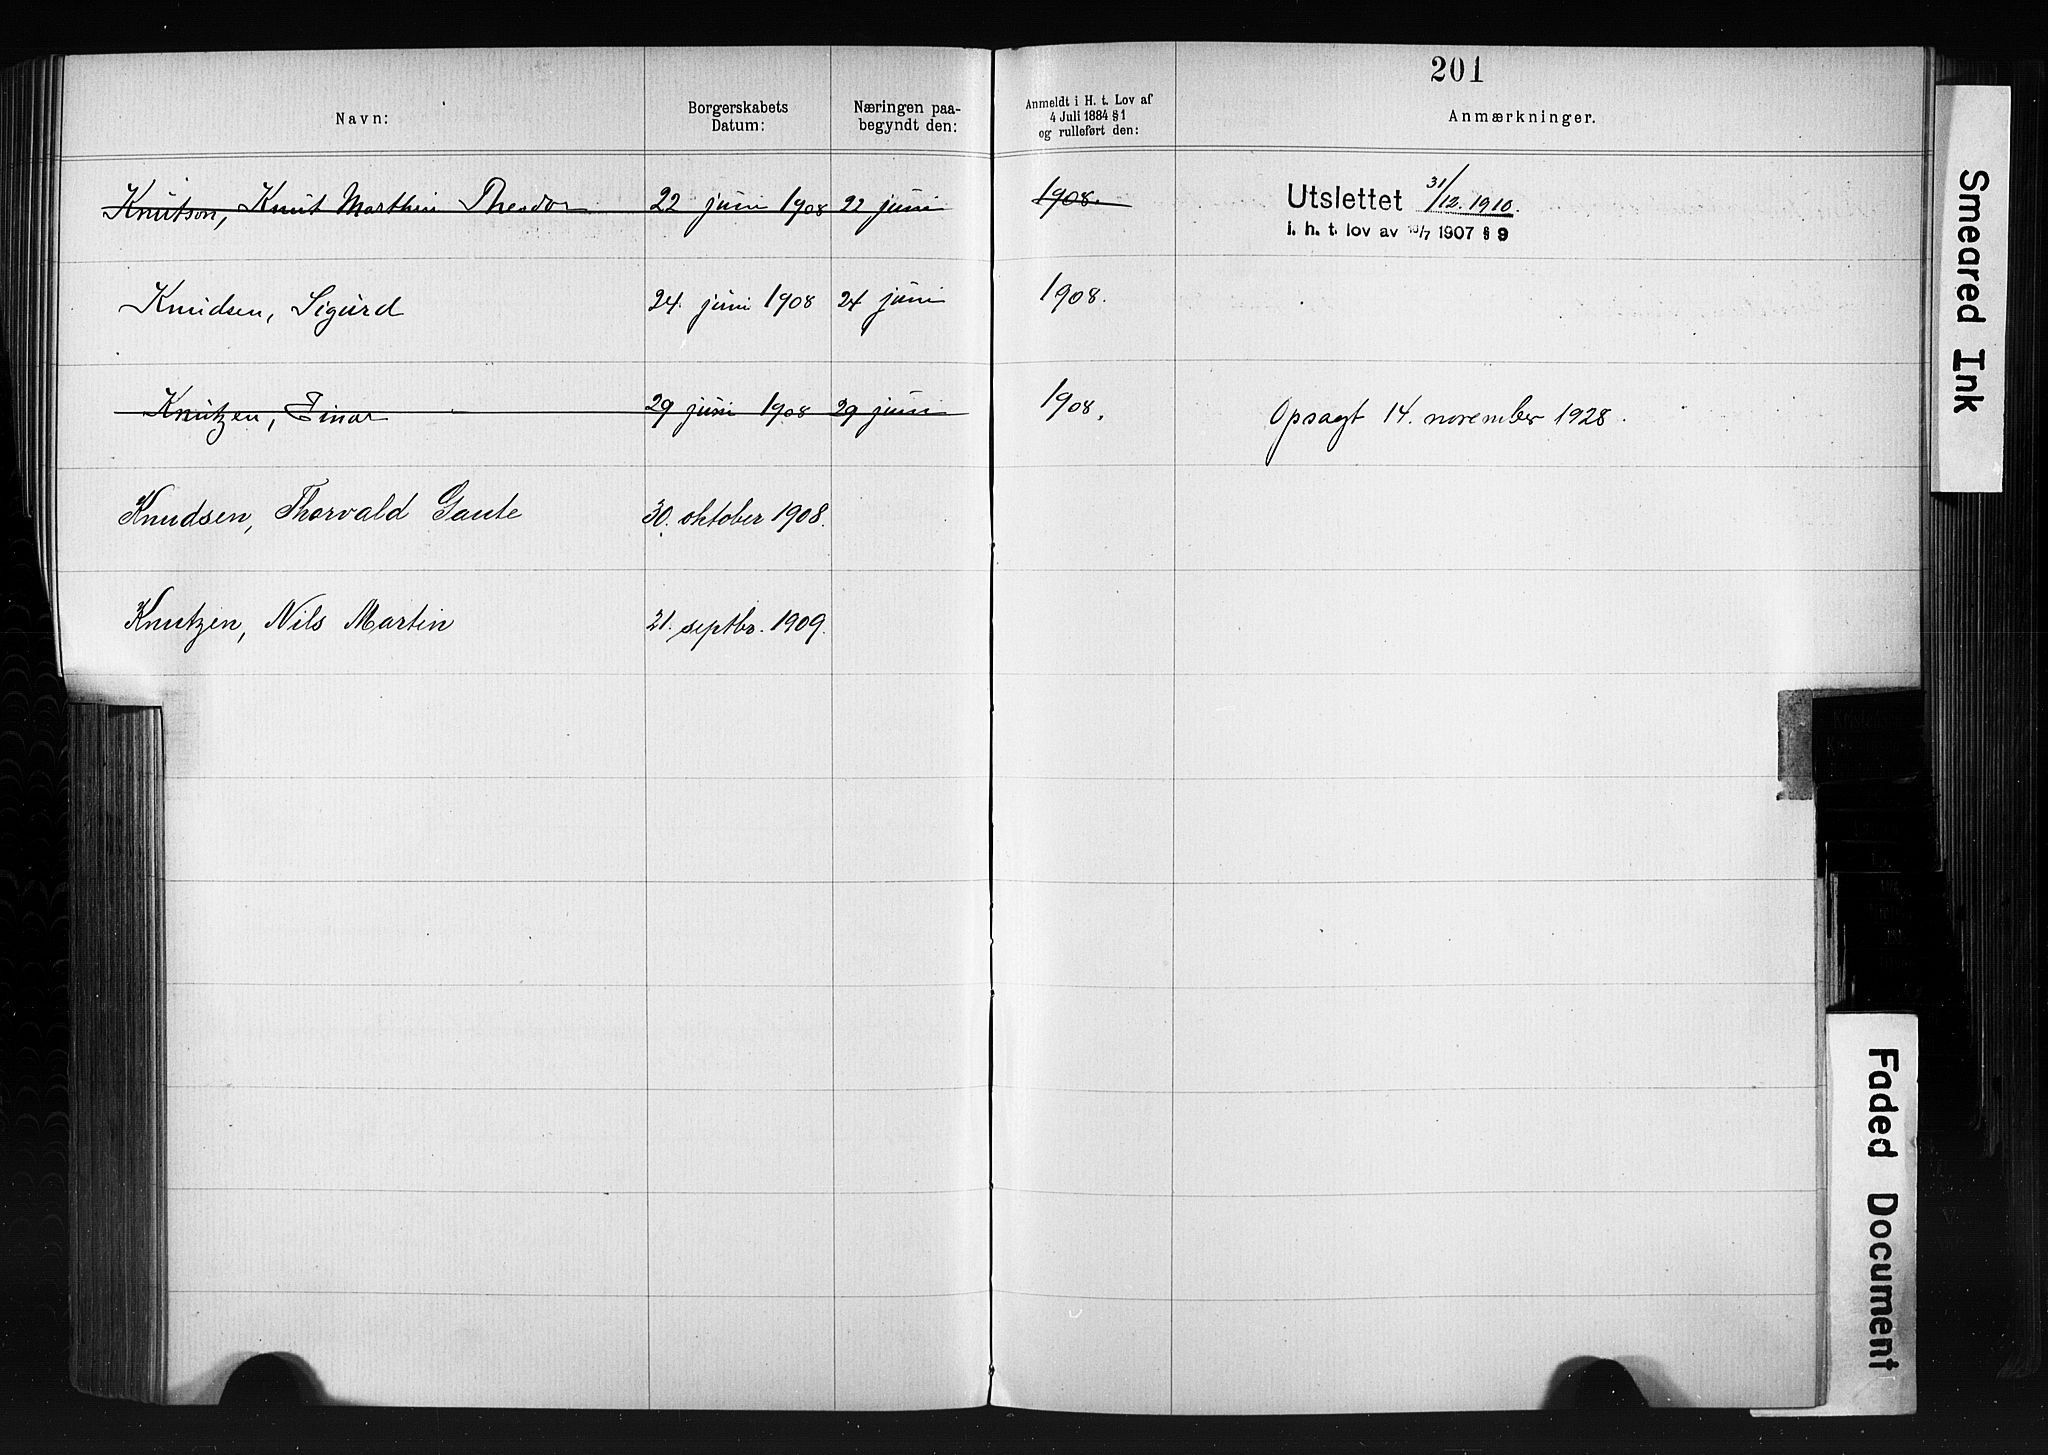 201
Navn:
Borgerskabets Datum:
Næringen paa-
begyndt den:
Anmeldt i H. t. Lov af
4 Juli 1884 § 1
og rulleført den:
Anmærkninger.
Knutson, Knut Marthin Theodor 22 juni 1908 22 juni 1908. Utslettet 31/12. 1910.
i. h. t. lov av 1907 § 9
Knudsen, Sigurd 24. juni 1908 24 juni 1908.
Knutzen, Einar 29 juni 1908 29 juni 1908. Opsagt 14. november 1928.
Knudsen, Thorvald Gaute 30. oktober 1908.
Knutzen, Nils Martin 21. septbr. 1909.
Smeared Ink
Faded Document